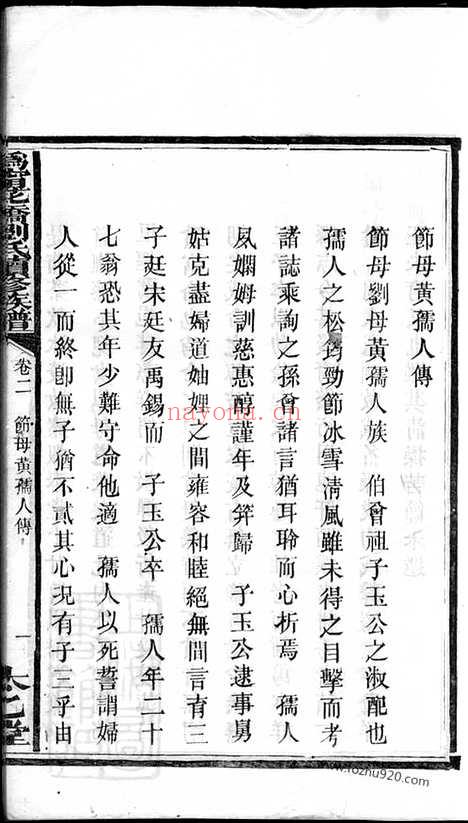 節母黃孺人傳
節母劉母黃孺人族 伯會祖子玉公之淑配也
孺人之松筠勁節冰雪清風雖未得之目擊而考
諸誌乘詢之孫曾諸言猶耳聆而心折焉 孺人
夙嫻姆訓慈惠醇謹年及笄歸 子玉公逮事舅
姑克盡婦道妯娌之間雍容和睦絕無間言育三
子莛宋廷友禹錫而 子玉公卒 孺人年二十
七翁恐其年少難守命他適 孺人以死誓謂婦
人從一而終卽無子猶不貳其心况有子三乎由
橋劉氏續修族譜
卷二 節母黃孺人傳
一
太乙堂
nayona.cn
www.1ozhu920.com